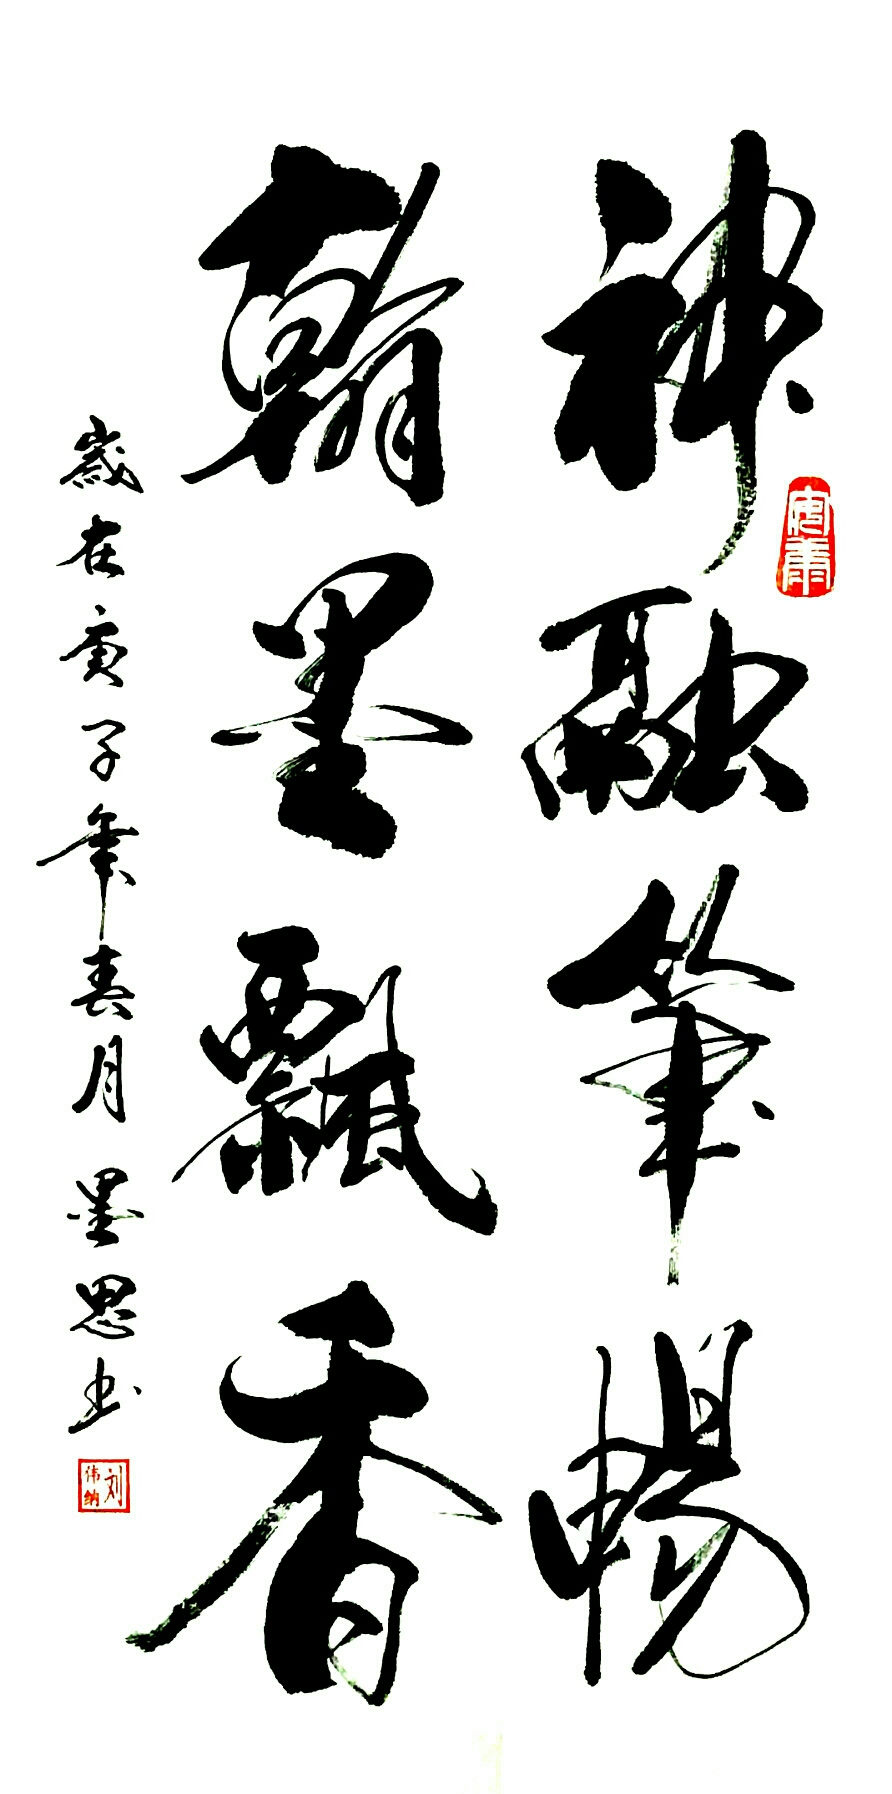 神融筆暢
翰墨飄香
歲在庚子年春月 墨思书
刘伟纳